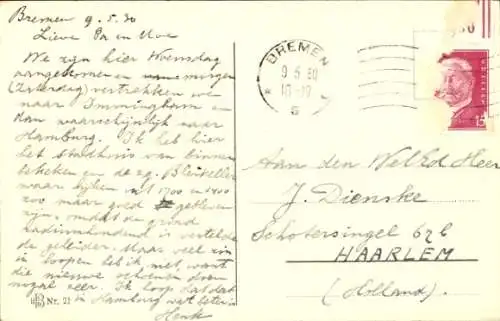 Bremen 9.5.30
Lieve Pa en Moe
We zijn hier Woensdag
aangekomen en morgen
(Zaterdag) vertrekken we
naar Immingham en
dan waarschijnlijk naar
Hamburg. Ik heb hier
het stadhuis van binnen
bekeken en de zg. Bleikeller
waar lijken uit 1700 en 1800
zoo maar goed gebleven
zijn, omdat de grond
is vertelde
de geleider. Maar veel
loopen heb ik niet, want
die nieuwe schoenen doen
nogal zeer. Ik loop dat
in Hamburg wat beter is
Henk
HB Nr. 21
BREMEN
9 5 30
18-19
5
15
Aan den WelEd Heer
J. Dienske
Schotersingel 67b
HAARLEM
(Holland)